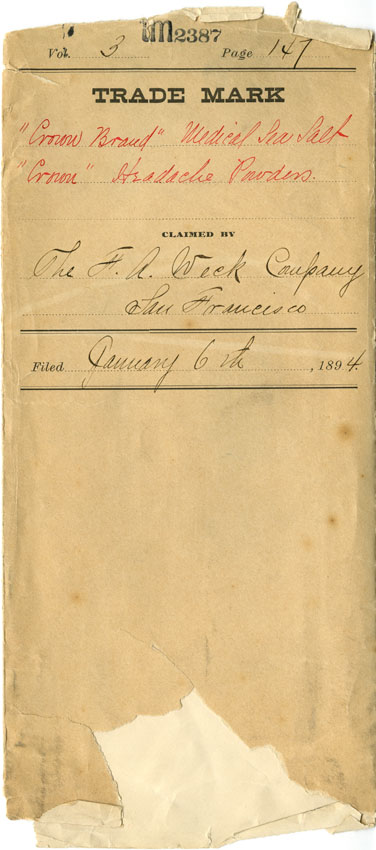 tm2387
Vol. 3 Page 147
TRADE MARK
"Crown Brand" Medical Sea Salt
"Crown" Headache Powders.
CLAIMED BY
The F. A. Weck Company
San Francisco
Filed January 6th, 1894.